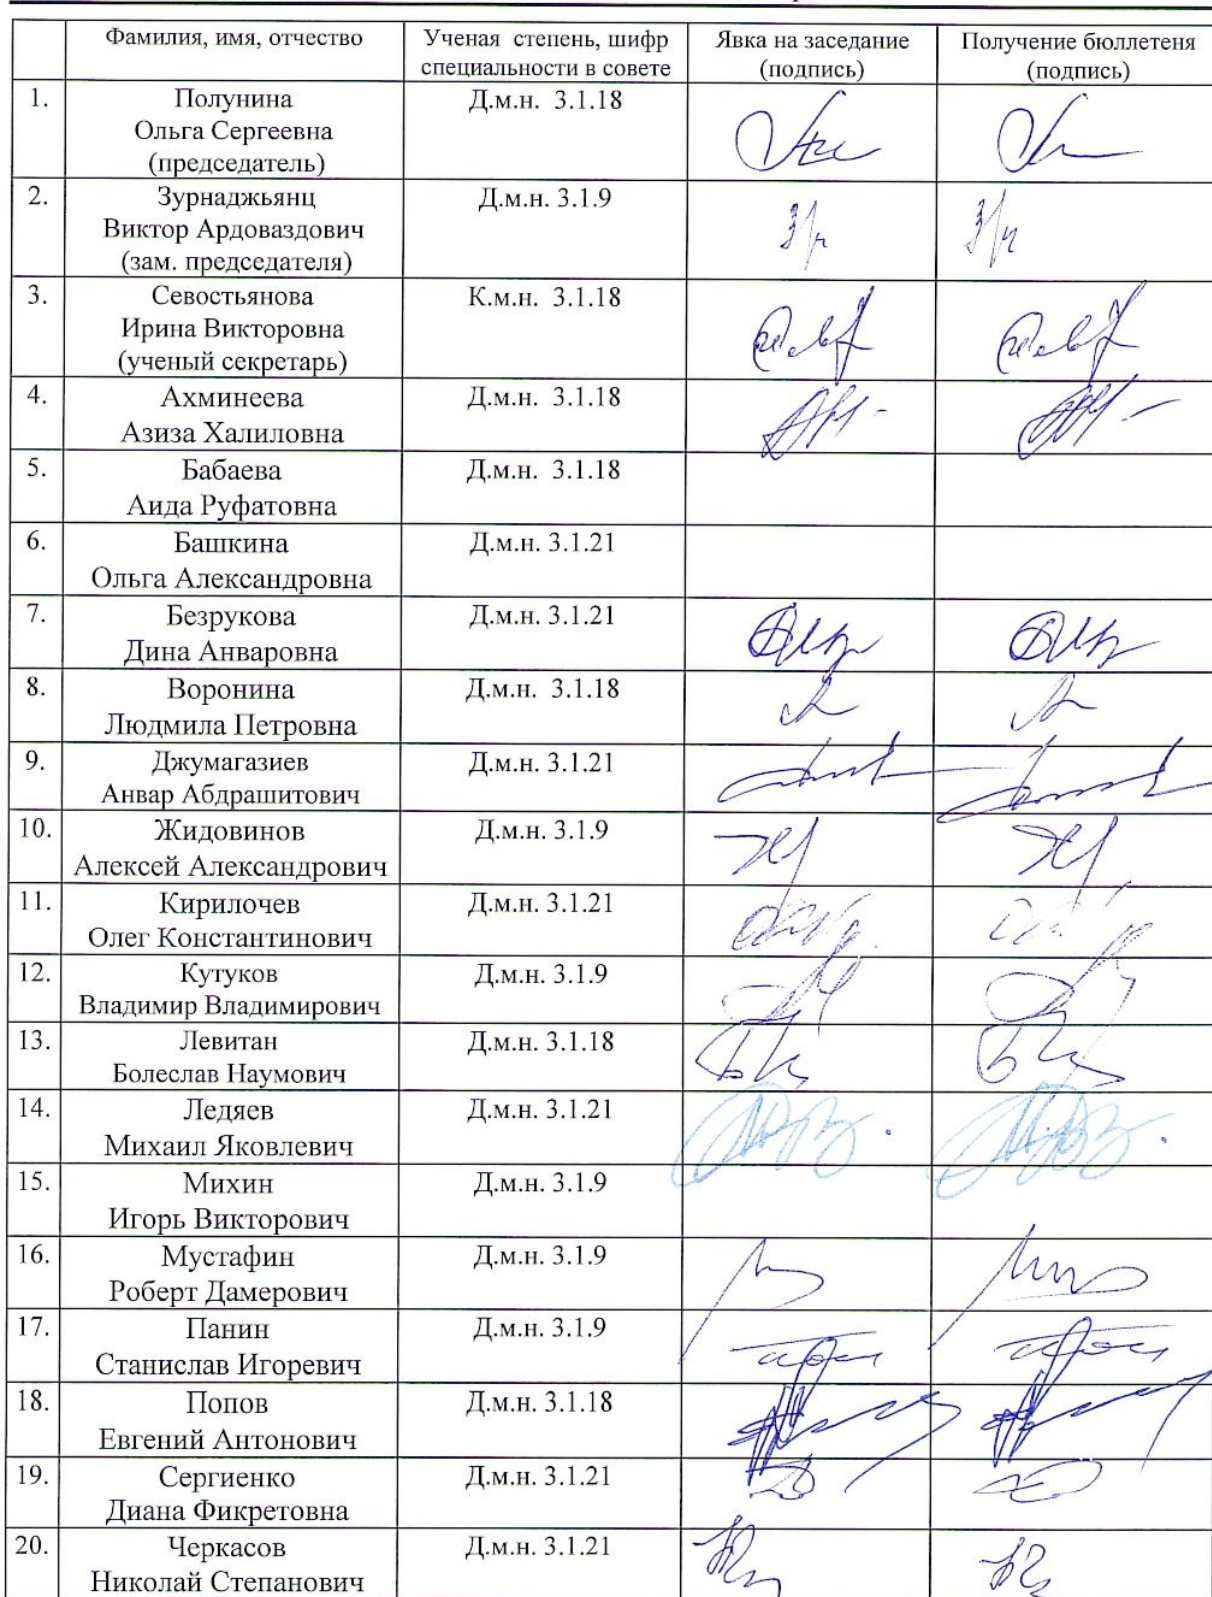 Фамилия, имя, отчество
Ученая степень, шифр
специальности в совете
Явка на заседание
(подпись)
Получение бюллетеня
(подпись)
1.
Полунина
Ольга Сергеевна
(председатель)
Д.м.н. 3.1.18
2.
Зурнаджьянц
Виктор Ардоваздович
(зам. председателя)
Д.м.н. 3.1.9
3.
Севостьянова
Ирина Викторовна
(ученый секретарь)
К.м.н. 3.1.18
4.
Ахминеева
Азиза Халиловна
Д.м.н. 3.1.18
5.
Бабаева
Аида Руфатовна
Д.м.н. 3.1.18
6.
Башкина
Ольга Александровна
Д.м.н. 3.1.21
7.
Безрукова
Дина Анваровна
Д.м.н. 3.1.21
8.
Воронина
Людмила Петровна
Д.м.н. 3.1.18
9.
Джумагазиев
Анвар Абдрашитович
Д.м.н. 3.1.21
10.
Жидовинов
Алексей Александрович
Д.м.н. 3.1.9
11.
Кирилочев
Олег Константинович
Д.м.н. 3.1.21
12.
Кутуков
Владимир Владимирович
Д.м.н. 3.1.9
13.
Левитан
Болеслав Наумович
Д.м.н. 3.1.18
14.
Ледяев
Михаил Яковлевич
Д.м.н. 3.1.21
15.
Михин
Игорь Викторович
Д.м.н. 3.1.9
16.
Мустафин
Роберт Дамерович
Д.м.н. 3.1.9
17.
Панин
Станислав Игоревич
Д.м.н. 3.1.9
18.
Попов
Евгений Антонович
Д.м.н. 3.1.18
19.
Сергиенко
Диана Фикретовна
Д.м.н. 3.1.21
20.
Черкасов
Николай Степанович
Д.м.н. 3.1.21